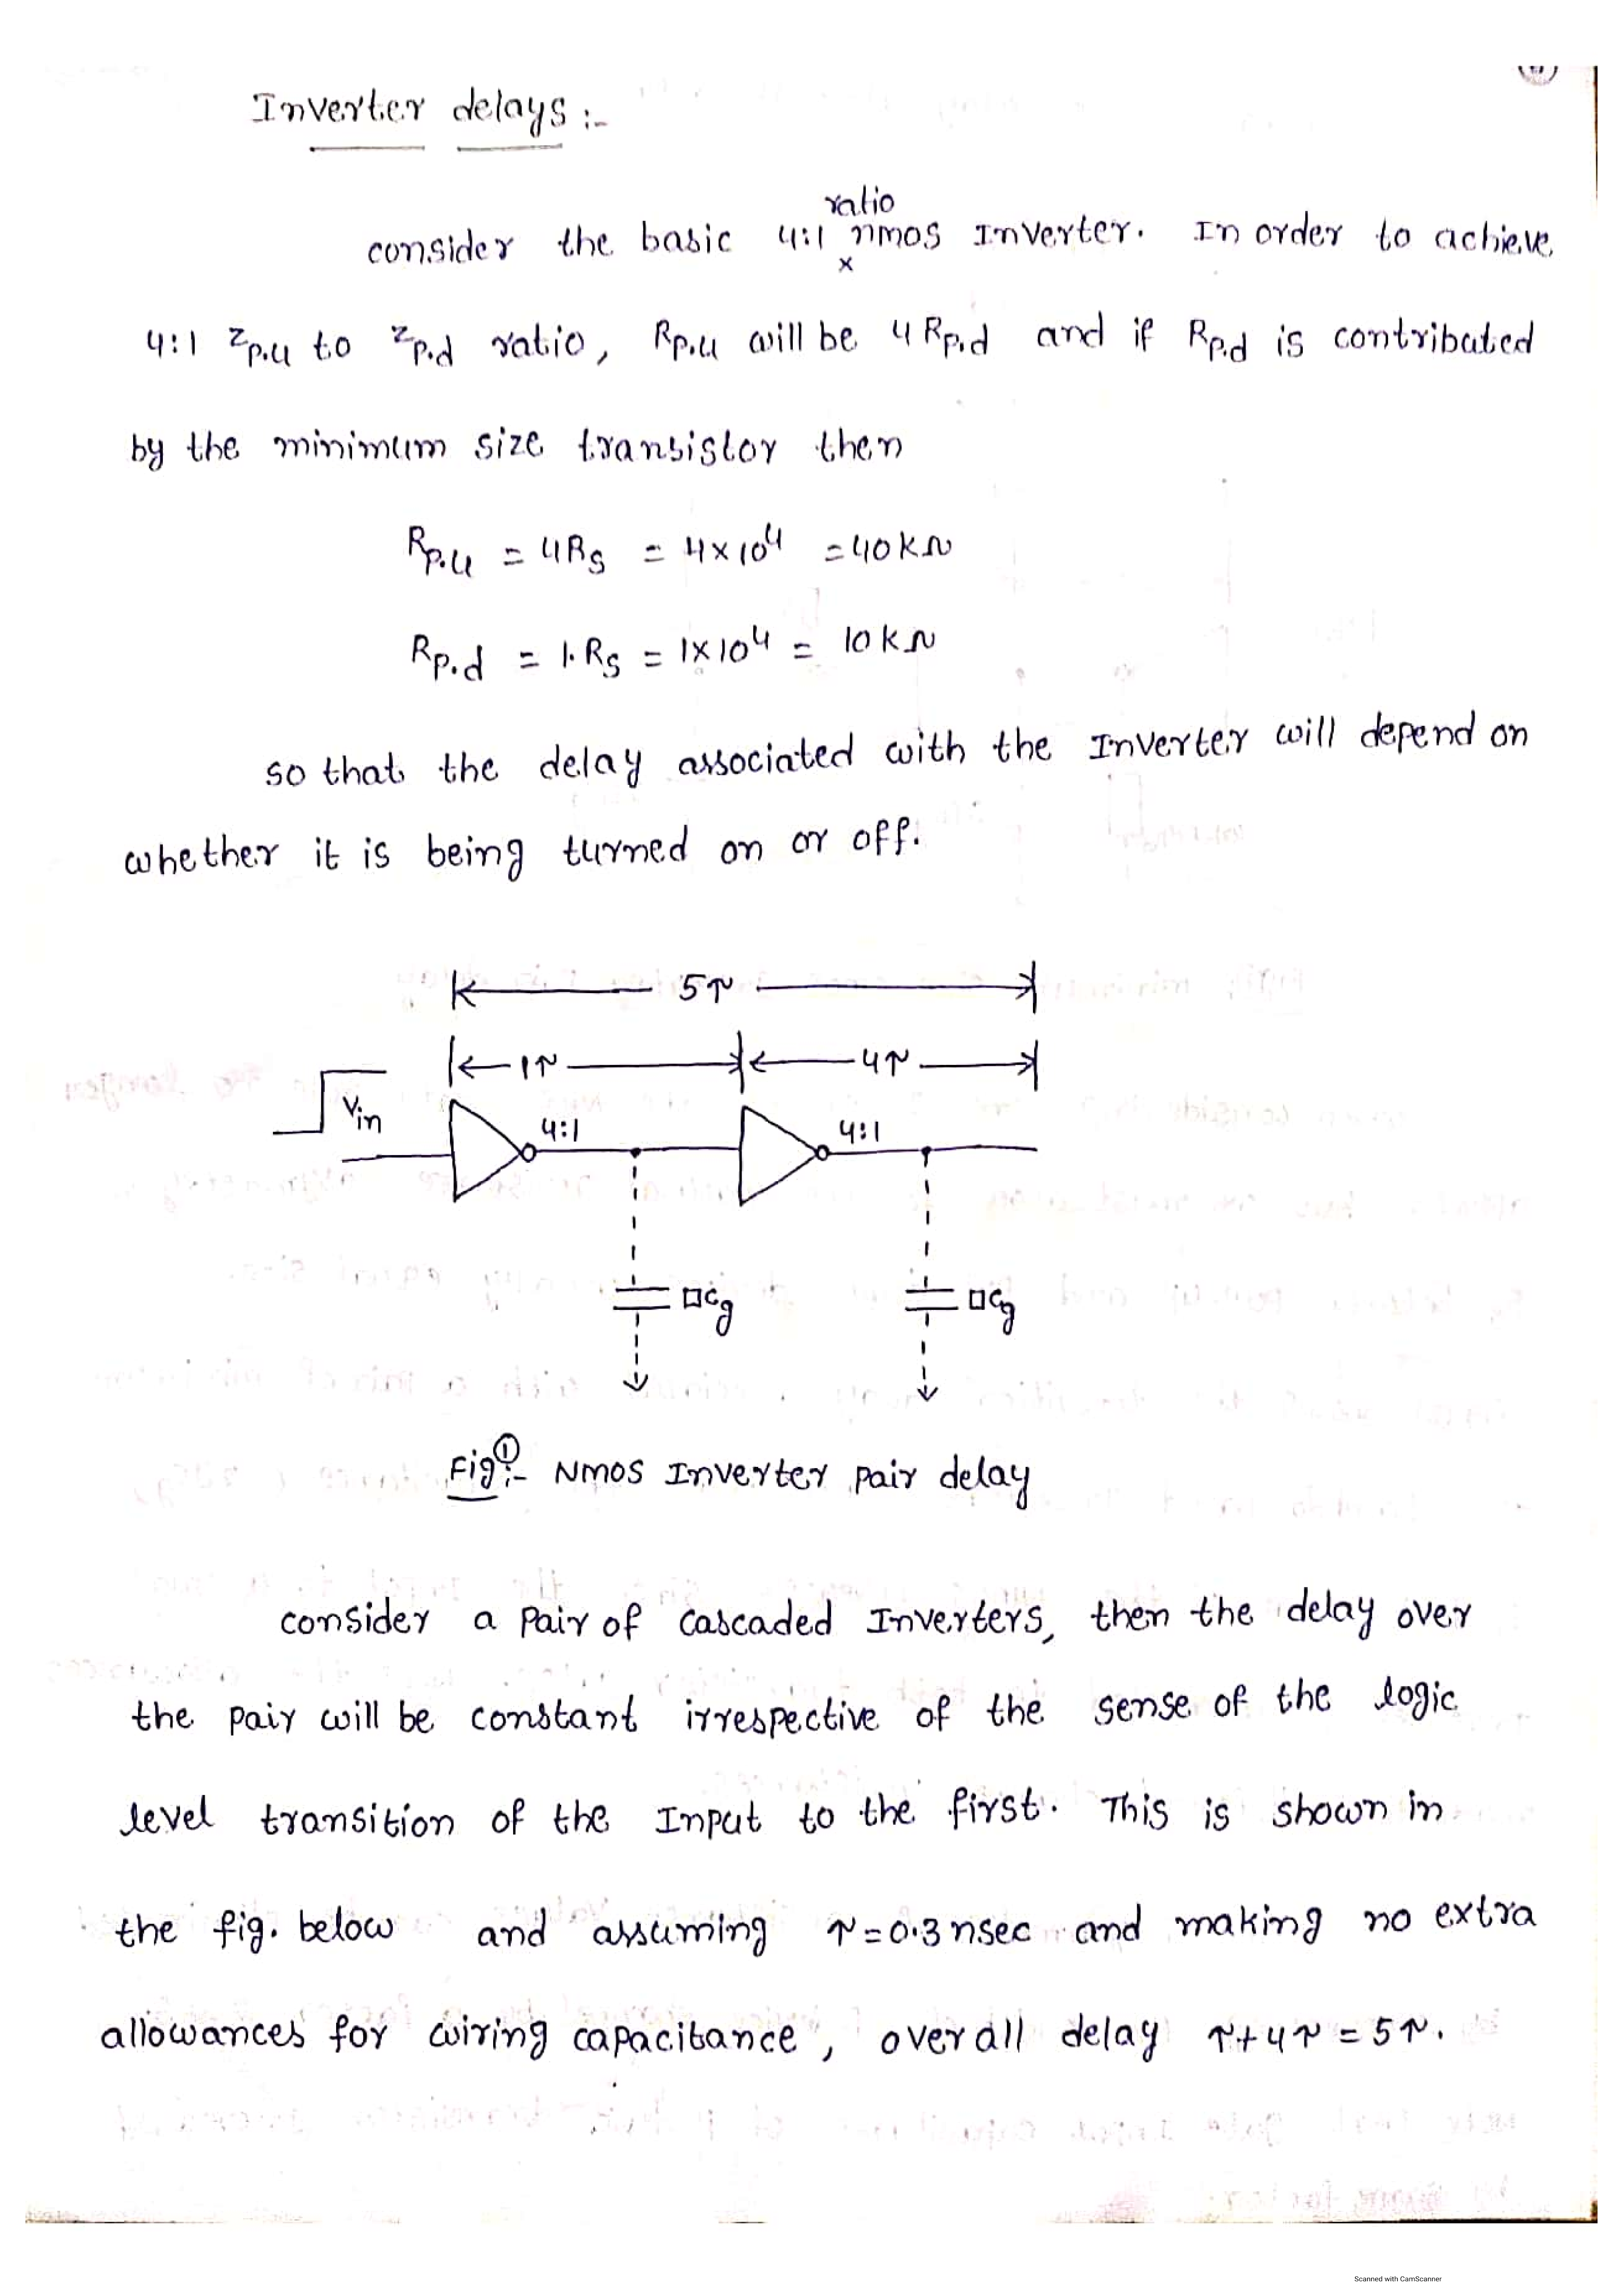 Inverter delays :-
ratio
consider the basic 4:1 nmos Inverter. In order to achieve
x
4:1 Zp.u to Zp.d ratio, Rp.u will be 4 Rp.d and if Rp.d is contributed
by the minimum size transistor then
Rp.u = 4Rs = 4×10⁴ = 40KΩ
Rp.d = 1.Rs = 1×10⁴ = 10KΩ
so that the delay associated with the Inverter will depend on
whether it is being turned on or off.
5τ
1τ 4τ
Vin 4:1 4:1
□Cg □Cg
Fig①:- Nmos Inverter pair delay
consider a pair of cascaded Inverters, then the delay over
the pair will be constant irrespective of the sense of the logic
level transition of the Input to the first. This is shown in
the fig. below and assuming τ=0.3nsec and making no extra
allowances for wiring capacitance, over all delay τ+4τ=5τ.
Scanned with CamScanner